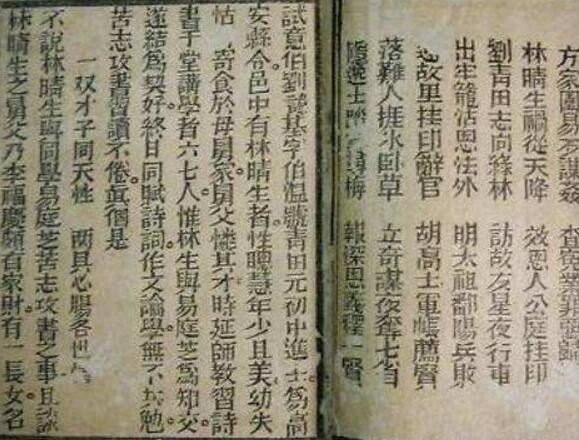 方家園易芝謀姦
林晴生禍從天降 效恩人公庭挂印
劉青田志向綠林 訪故友星夜行車
出牢籠沾恩法外 明太祖鄱陽兵敗
故里挂印辭官 胡高士軍帳薦賢
落難人捱氷卧草 立奇謀夜奪七省
隱逸士踏 尋梅 報深恩義釋一賢
試意伯劉諱基字伯溫號青田元初中進士為高
安縣令邑中有林晴生者。性聰慧年少且美幼失
怙。寄食於母舅家舅父憐其才時延師教習詩
書于堂講學者六七人。惟林生與易庭芝為知交。
遂結為契好終日同賦詩詞。作文論學。無不共勉
苦志攻書習讀不倦。真個是
一双才子同天性 兩具心腸各世
不說林晴生與同學易庭芝苦志攻書之事且說
林晴生之舅父乃李福慶頗有家財。有一長女名